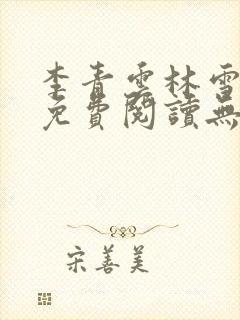 李青雲林雪
免費閱讀無
宋善美